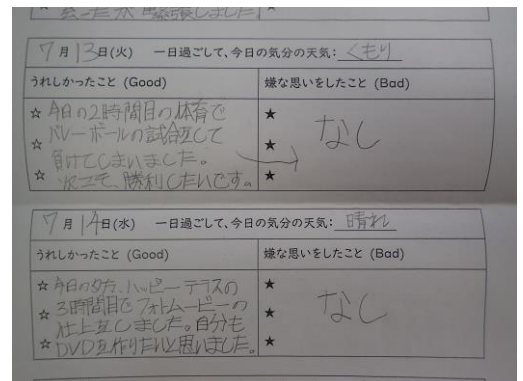 会った 緊張しました
7月13日(火) 一日過ごして、今日の気分の天気: くもり
うれしかったこと (Good) 嫌な思いをしたこと (Bad)
☆ 今日の2時間目の体育で ★ なし
☆ バレーボールの試合をして ★
負けてしまいました。
☆ 次こそ、勝利したいです。 ★
7月14日(水) 一日過ごして、今日の気分の天気: 晴れ
うれしかったこと (Good) 嫌な思いをしたこと (Bad)
☆ 今日の夕方、ハッピーテラスの ★ なし
☆ 3時間目でフォトムービーの ★
仕上をしました。自分も
☆ DVDを作りたいと思いました。 ★